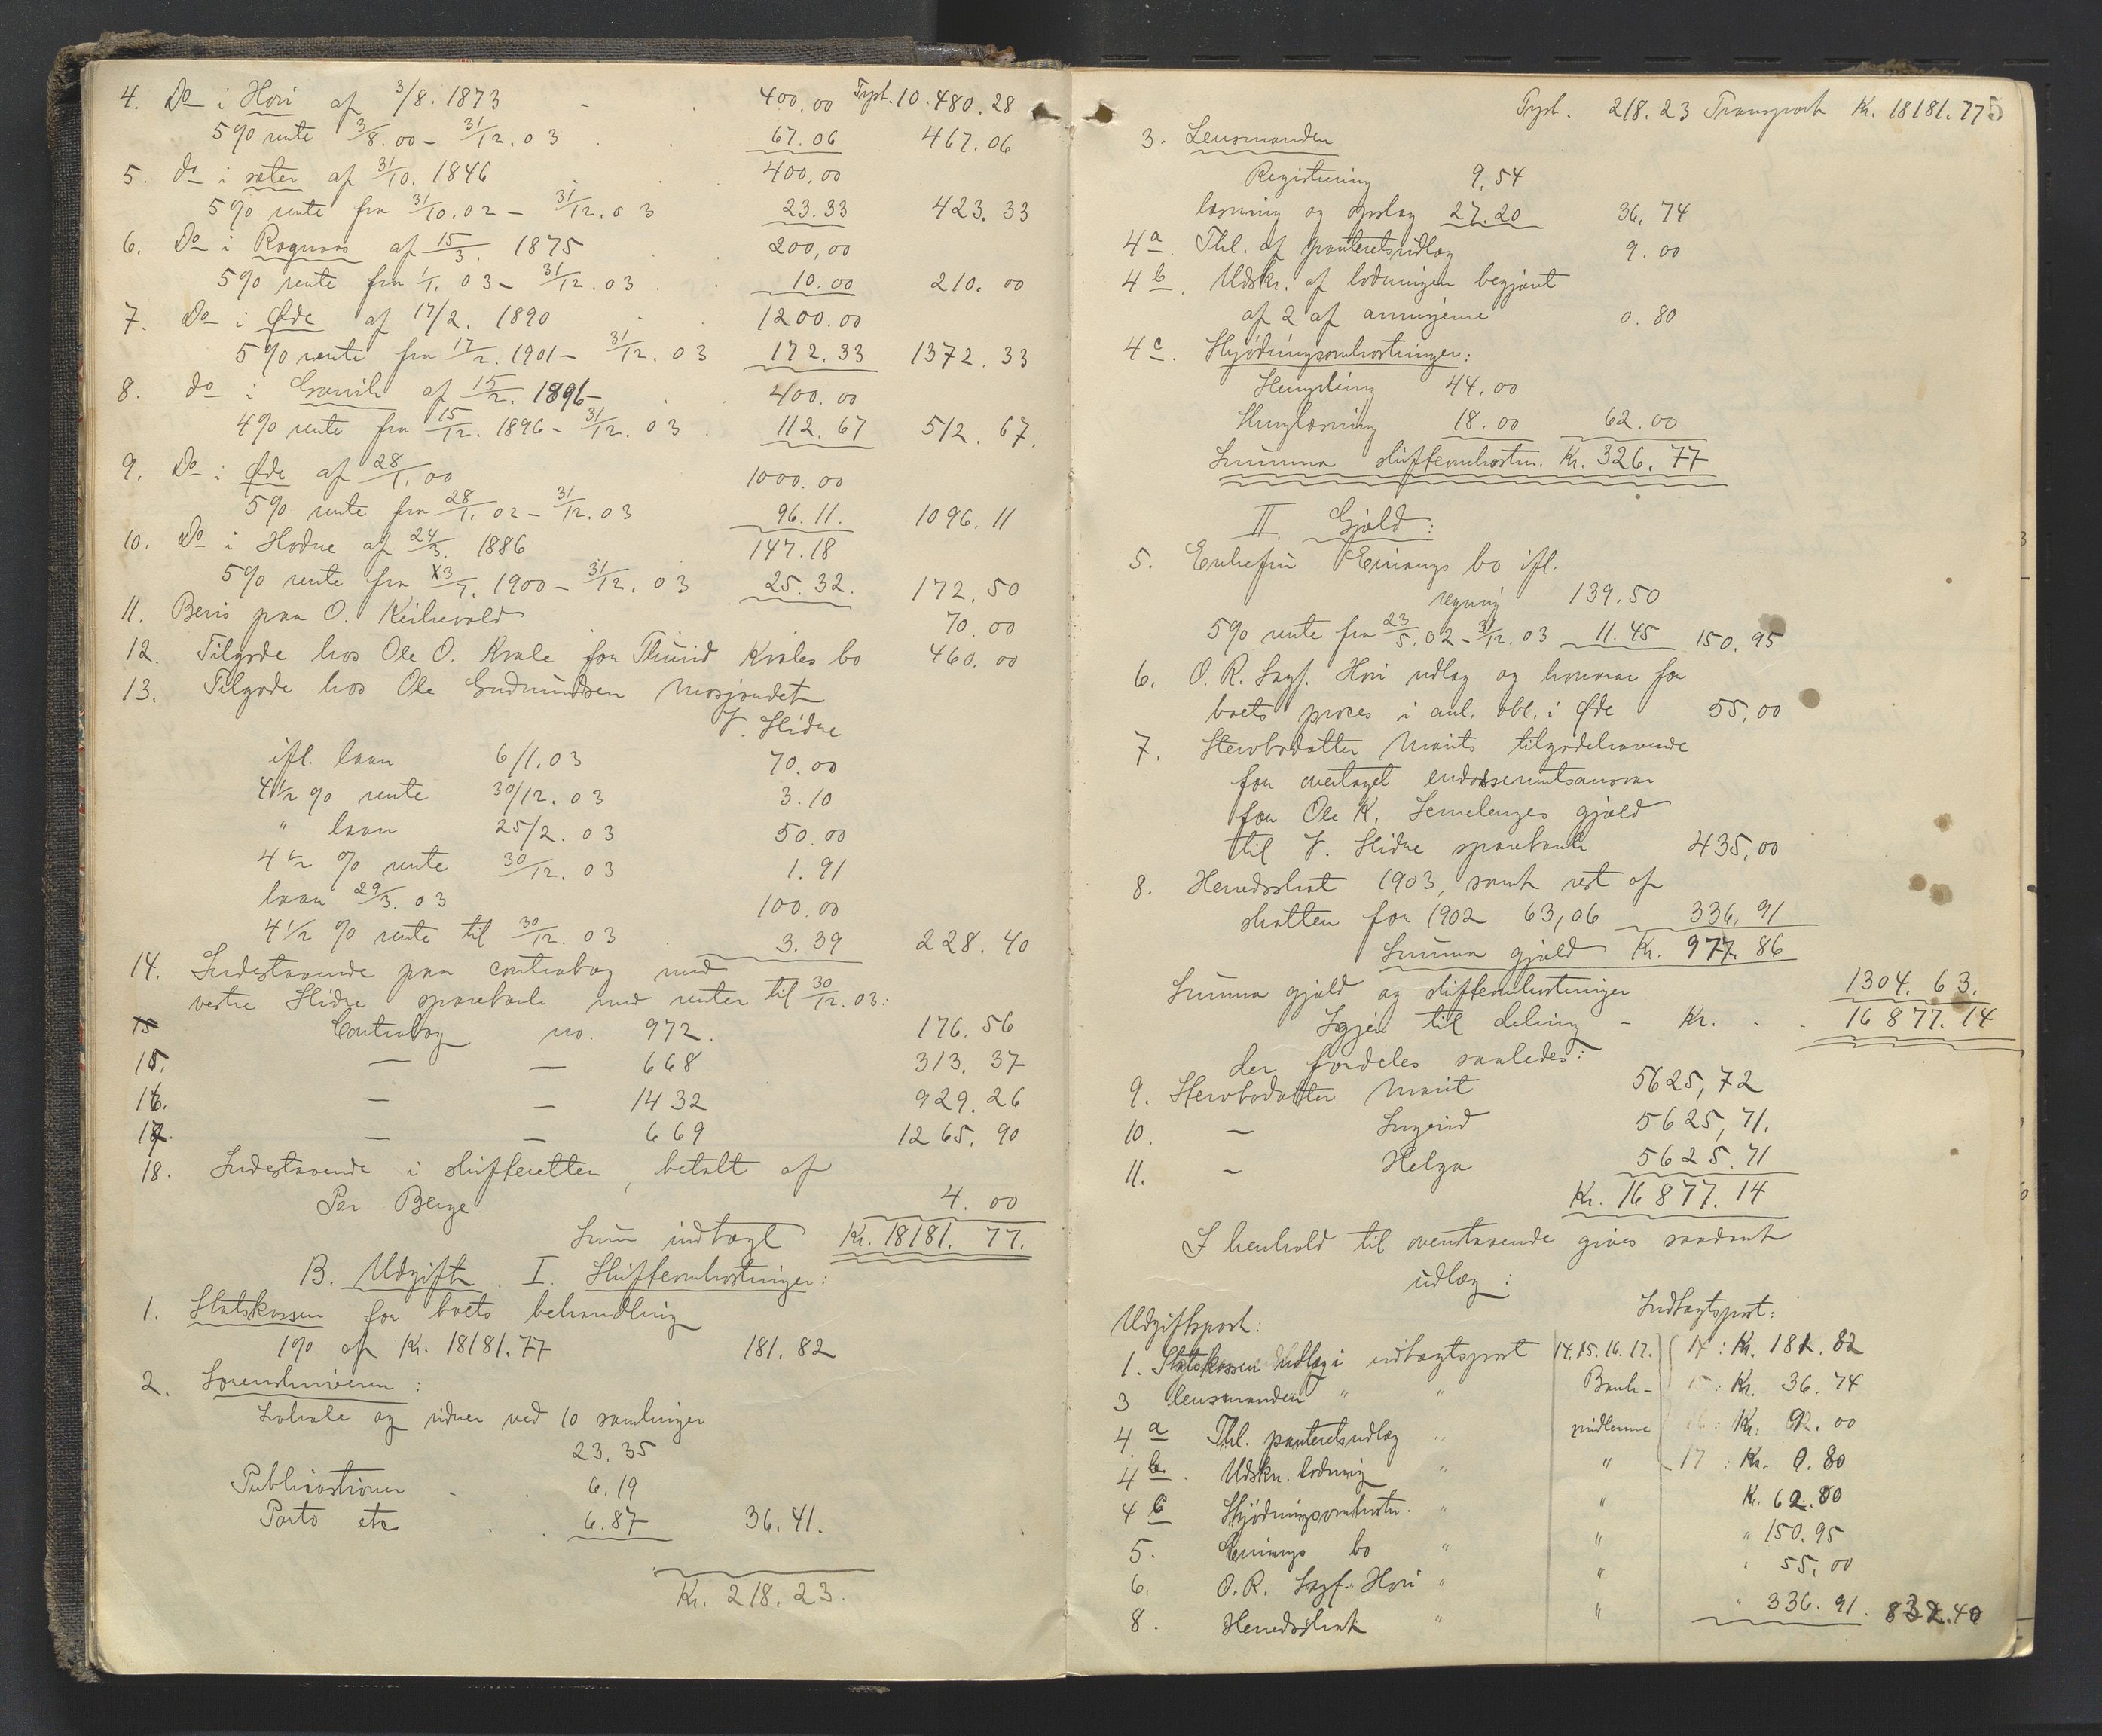 4. Do i Hovi af 3/8. 1873 - . 400.00 Trspt. 10.480.28
5% rente 3/8.00 - 31/12.03 . . 67.06 467.06
5. do i sæter af 31/10. 1846 . . 400,00
5% rente fra 31/10.02 - 31/12.03 23.33 423.33
6. Do i Rognaas af 15/3. 1875 . . 200,00
5% rente fra 1/1. 03 - 31/12.03 . . 10.00 210.00
7. Do i Øde af 17/2. 1890 . . 1200.00
5% rente fra 17/2. 1901 - 31/12.03 172.33 1372.33
8. do i af 15/2. 1896 - . . 400.00
4% rente fra 15/12. 1896 - 31/12.03 . 112.67 512.67.
9. Do i Øde af 28/1.00 1000.00
5% rente fra 28/1.02 - 31/12.03 96.11. 1096.11
10. Do i Hodne af 24/3. 1886 147.18
5% rente fra 1900 - 31/12.03 25.32. 172.50
11. Bevis paa O. 70.00
12. Tilgode hos Ole O. Kvale for Thurid Kvales bo 460.00
13. Tilgode hos Ole Gudmundsen Mosjordet
V. Slidre
ifl. laan 6/1.03 70.00
4 1/2 % rente 30/12.03 3.10
" laan 25/2.03 50.00
4 1/2 % rente 30/12.03 1.91
laan 29/3.03 100.00
4 1/2 % rente til 30/12.03 . 3.39 228.40
14. Indestaaende paa contrabog med
vestre Slidre sparebank med renter til 30/12.03:
15 Contrabog no. 972. 176.56
15. — — 668 313.37
16. — — 1432 929.26
17. — — 669 1265.90
18. Indestaaende i skifteretten, betalt af
Per Berge 4.00
Sum indtægt Kr. 18181.77.
B. Udgift. I. Skifteomkostninger:
1. Statskassen for boets behandling
1% af Kr. 18181.77 181.82
2. Sorenskriveren:
Lokale og vidner ved 10 samlinger
23.35
Publicationer . . 6.19
Porto etc . . 6.87 36.41.
Kr. 218.23.
Trspt. 218.23 Transport Kr. 18181.77 5
3. Lensmanden
Registrering 9.54
læsning og opslag 27.20 36.74
4a. Thl. af panteretsudlæg 9.00
4b. Udskr. af lodningen begjært
af 2 af arvingerne 0.80
4c. Skjødningsomkostninger:
44.00
18.00 62.00
Summa skifteomkostn. Kr. 326.77
II. Gjæld:
5. Enkefru bo ifl.
regning 139.50
5% rente fra 23/5.02 - 31/12.03 11.45 150.95
6. O. R. Sagf. Hovi udlæg og honorar for
boets proces i anl. obl. i Øde 55,00
7. Stervbodatter Marits tilgodehavende
for overtaget endossementsansvar
for Ole K. Semelenges gjæld
til V. Slidre sparebank 435,00
8. Herredsskat 1903, samt rest af
skatten for 1902 63,06 336,91
Summa gjæld Kr. 977.86
Summa gjæld og skifteomkostninger 1304.63.
Igjen til deling - Kr. . . 16877.14
der fordeles saaledes:
9. Stervbodatter Marit 5625,72
10. — Ingerid 5625,71.
11. — Helga 5625.71
Kr. 16877.14
I henhold til ovenstaaende gives saadant
udlæg:
Udgiftspost: Indtægtspost:
1. Statskassen udlæg i indtægtspost 14.15.16.17. 14: Kr. 181.82
3 lensmanden " " Bank- 15: Kr. 36.74
4a Thl. panteretsudlæg " midlerne 16: Kr. 9.00
4b. Udskr. lodning " " 17: Kr. 0.80
4c Skjødningsomkostn. " " K. 62.00
5. bo " " " 150.95
6. O.R. Sagf. Hovi " " " 55,00
8. Herredsskat " " " 336.91. 832.40